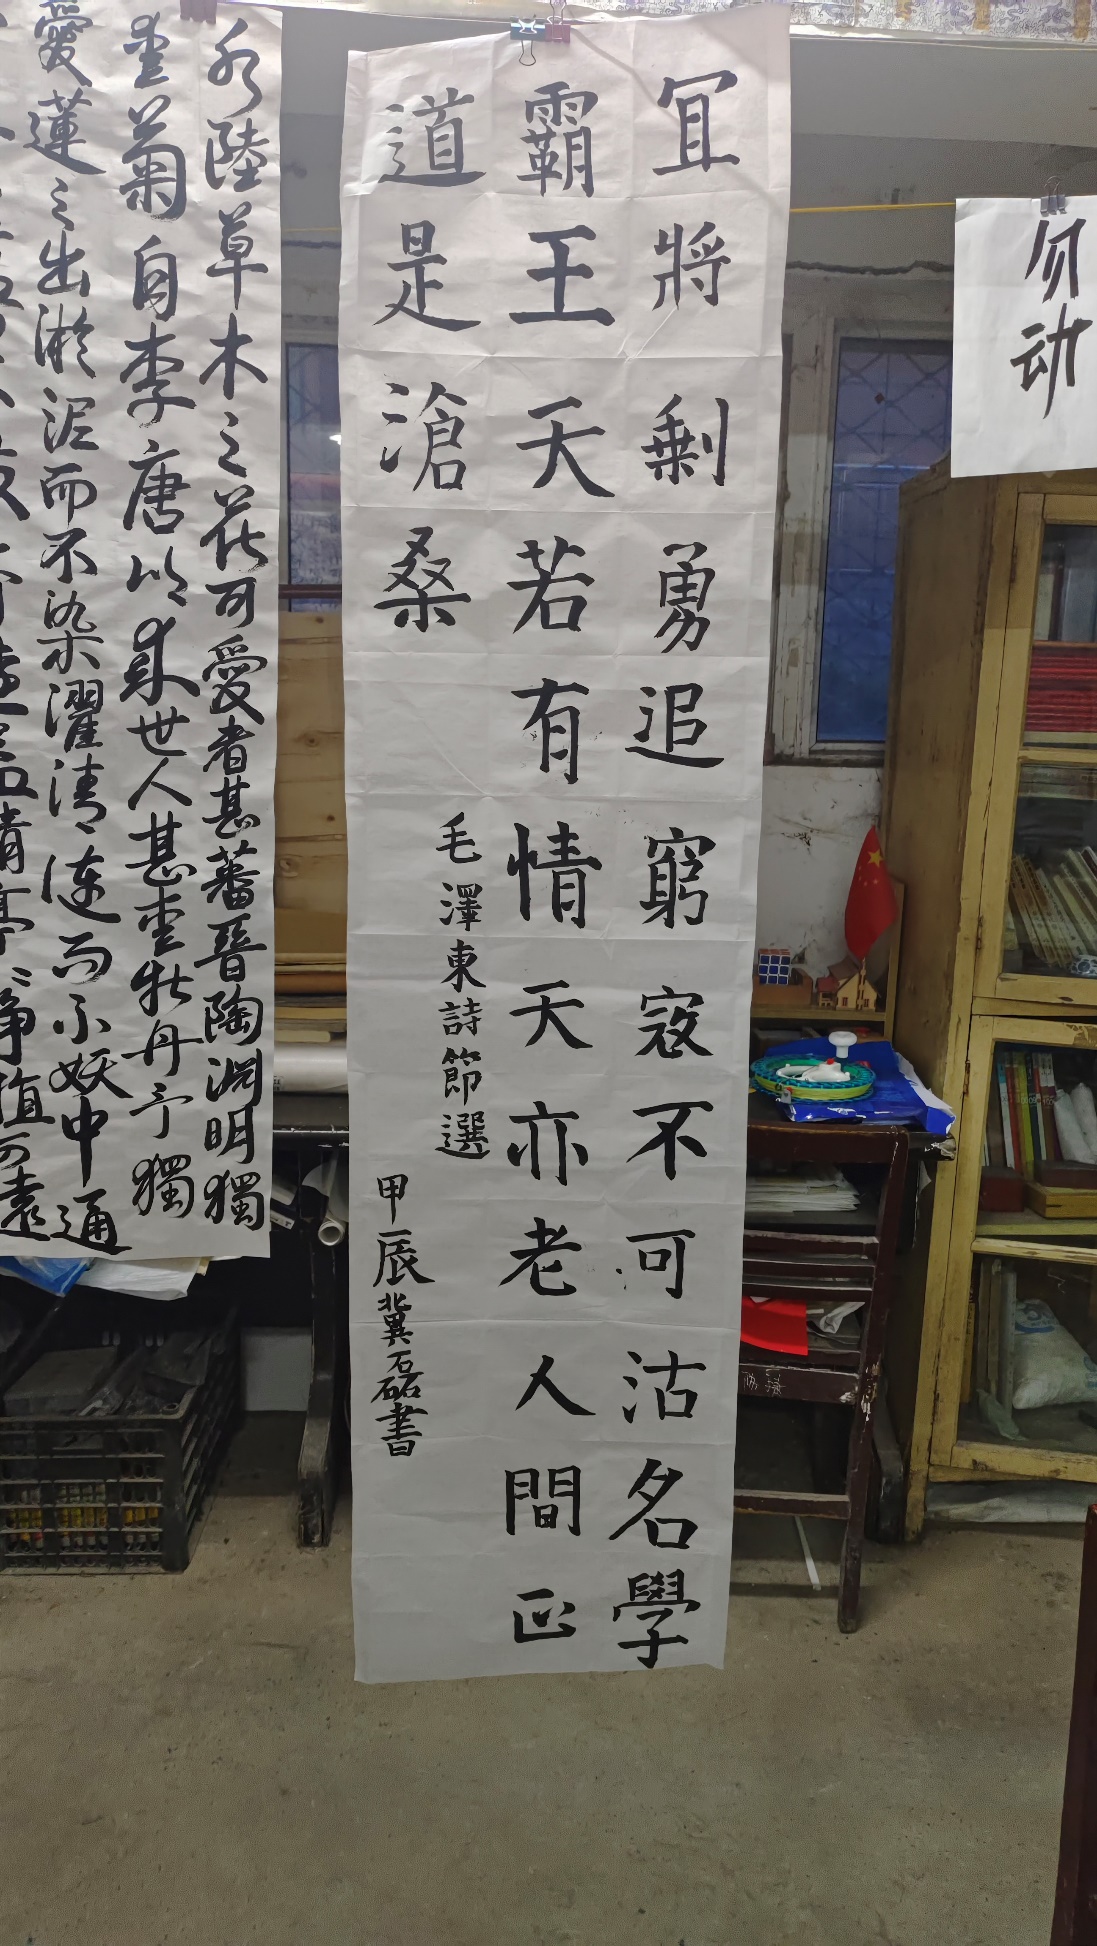 宜將剩勇追窮寇不可沽名學
霸王天若有情天亦老人間正
道是滄桑
毛澤東詩節選
甲辰冀磊書
水陸草木之花可愛者甚蕃晉陶淵明獨
愛菊自李唐以來世人甚愛牡丹予獨
愛蓮之出淤泥而不染濯清漣而不妖中通
勿动